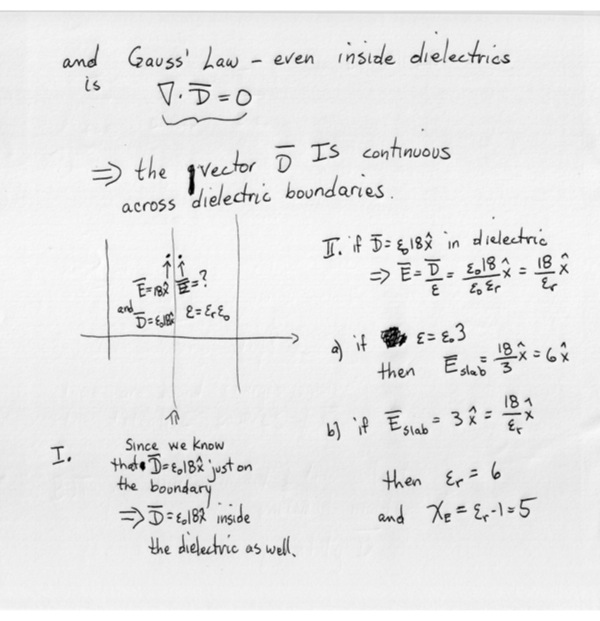 and Gauss' Law – even inside dielectrics
is
∇·D̅ = 0
⇒ the vector D̅ Is continuous
across dielectric boundaries.
E̅=18x̂ E̅=?
and D̅=ε₀18x̂ ε=εᵣε₀
I. Since we know
that D̅=ε₀18x̂ just on
the boundary
⇒ D̅=ε₀18x̂ inside
the dielectric as well.
II. if D̅=ε₀18x̂ in dielectric
⇒ E̅ = D̅/ε = ε₀18/ε₀εᵣ x̂ = 18/εᵣ x̂
a) if ε=ε₀3
then E̅slab = 18/3 x̂ = 6x̂
b) if E̅slab = 3x̂ = 18/εᵣ x̂
then εᵣ = 6
and χₑ = εᵣ-1=5